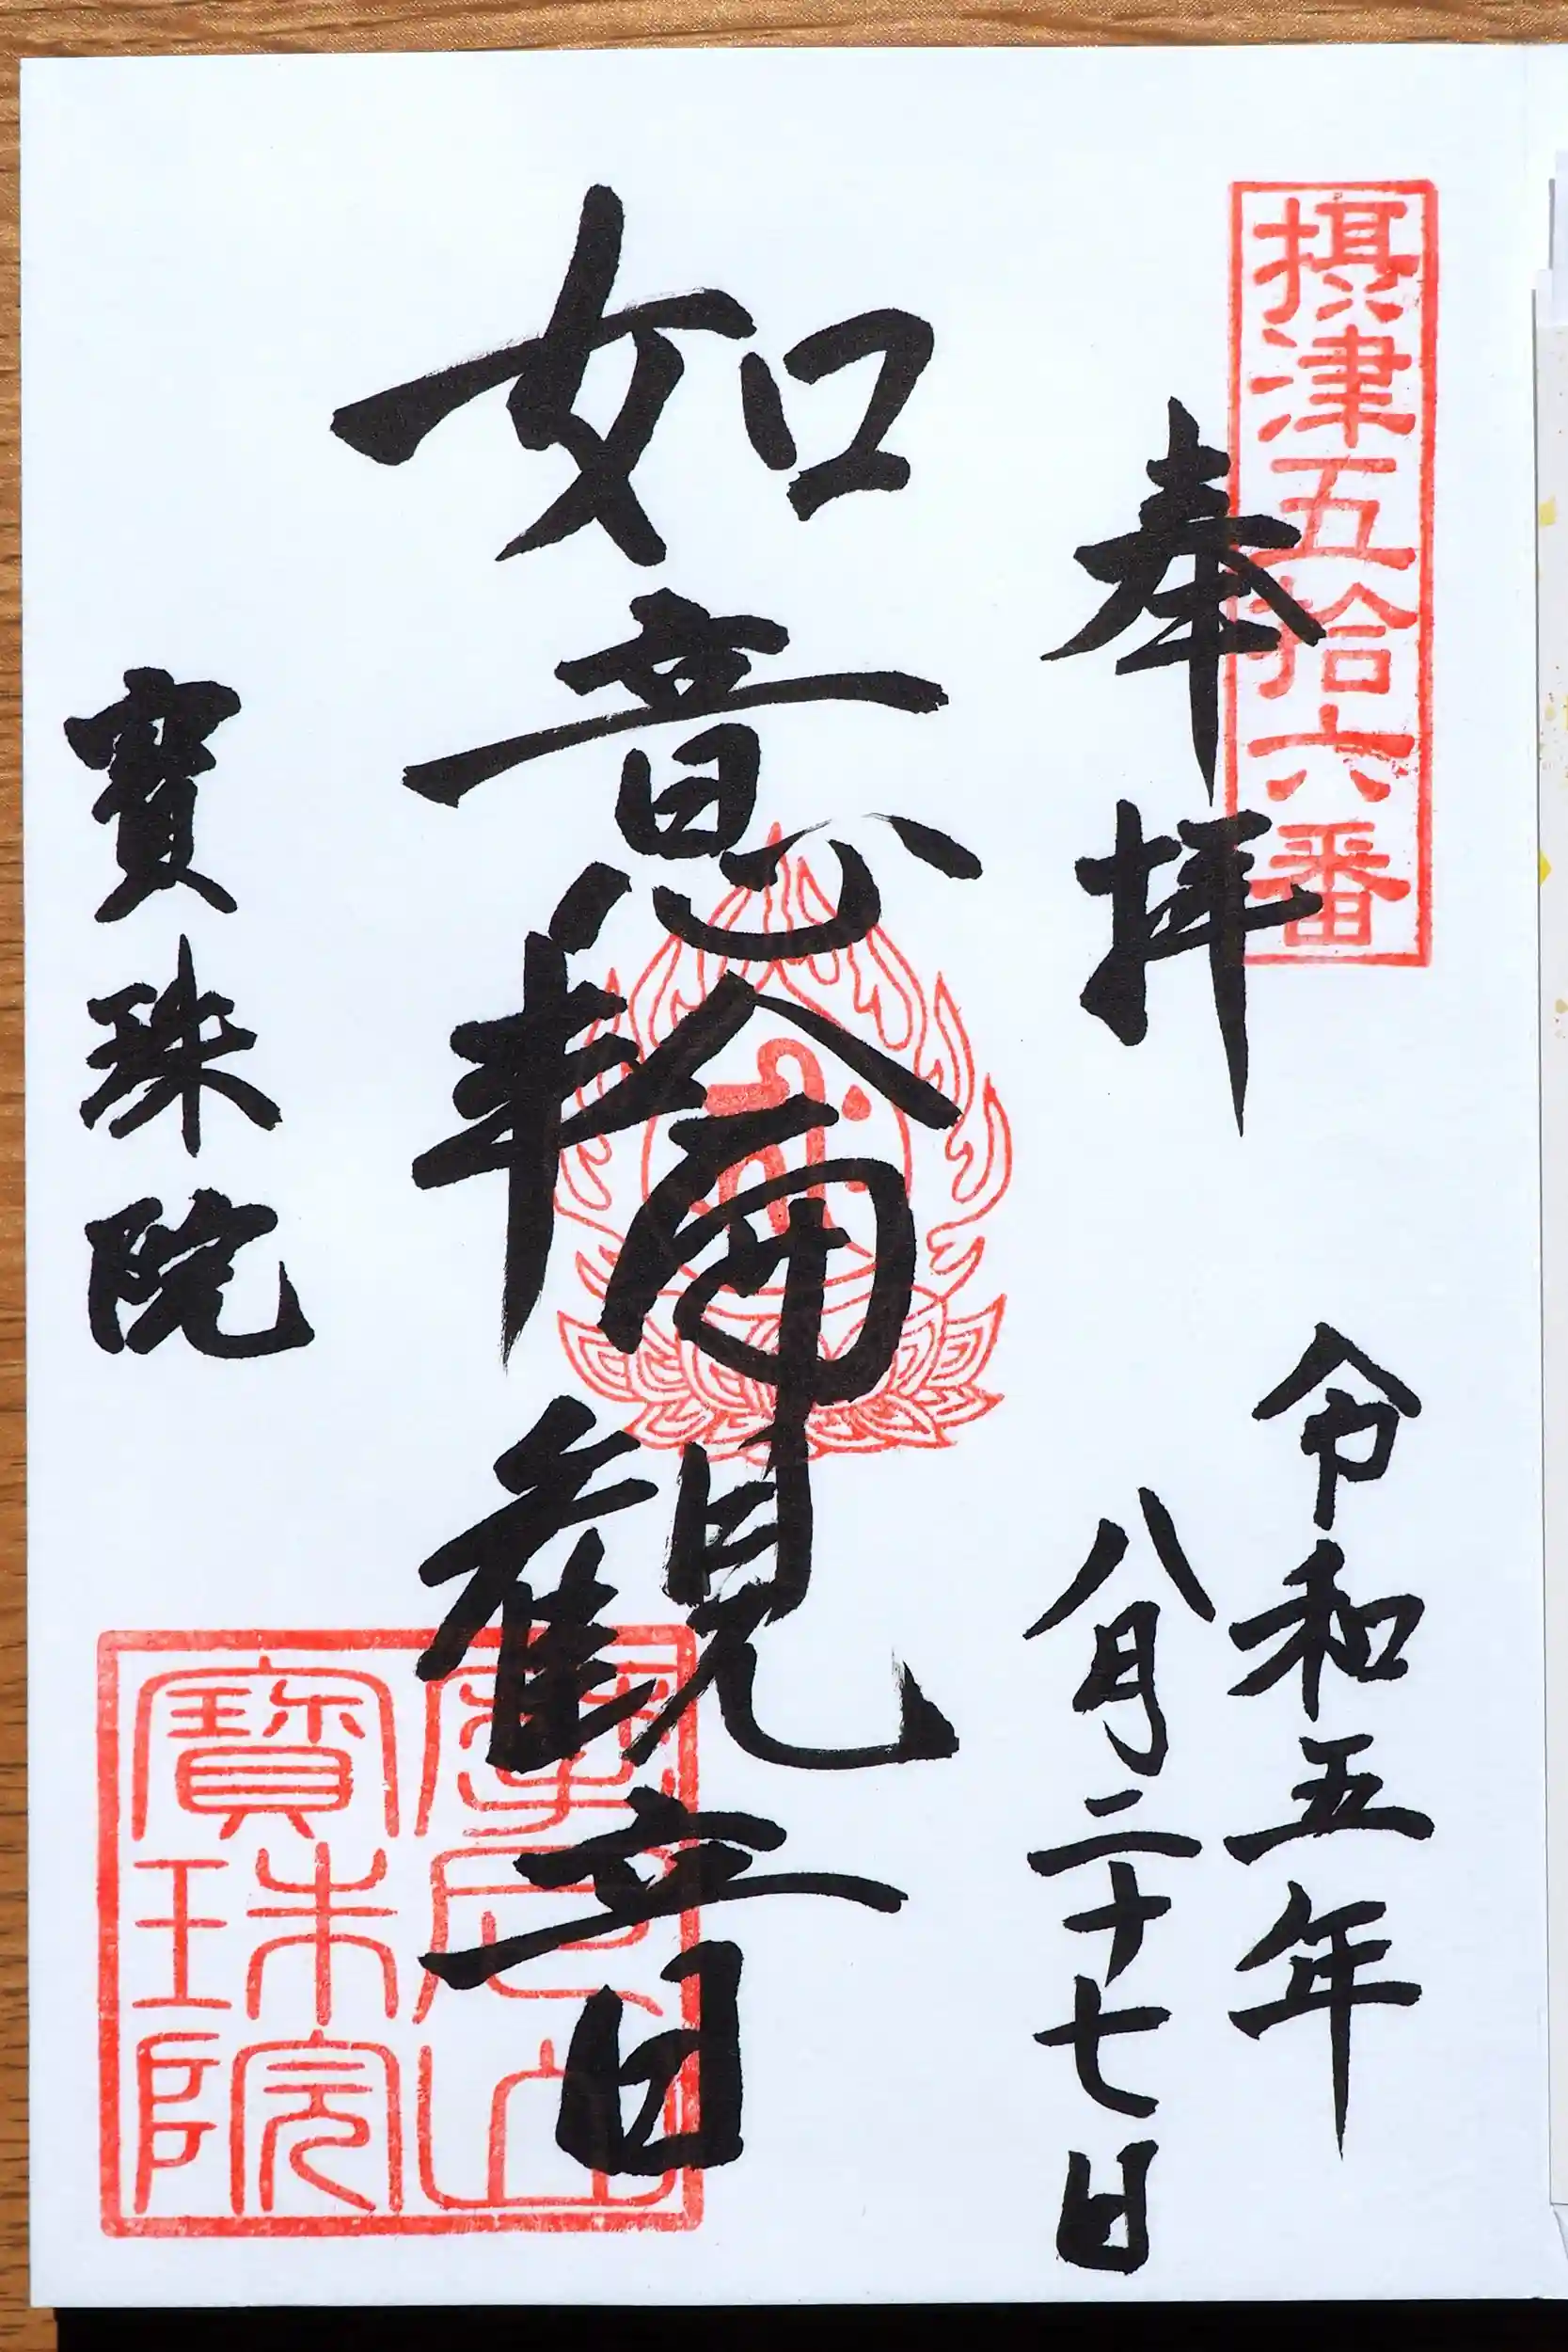 摂津五拾六番
奉拝
令和五年
八月二十七日
如意輪観音
寳珠院
摩尼山
寶珠院